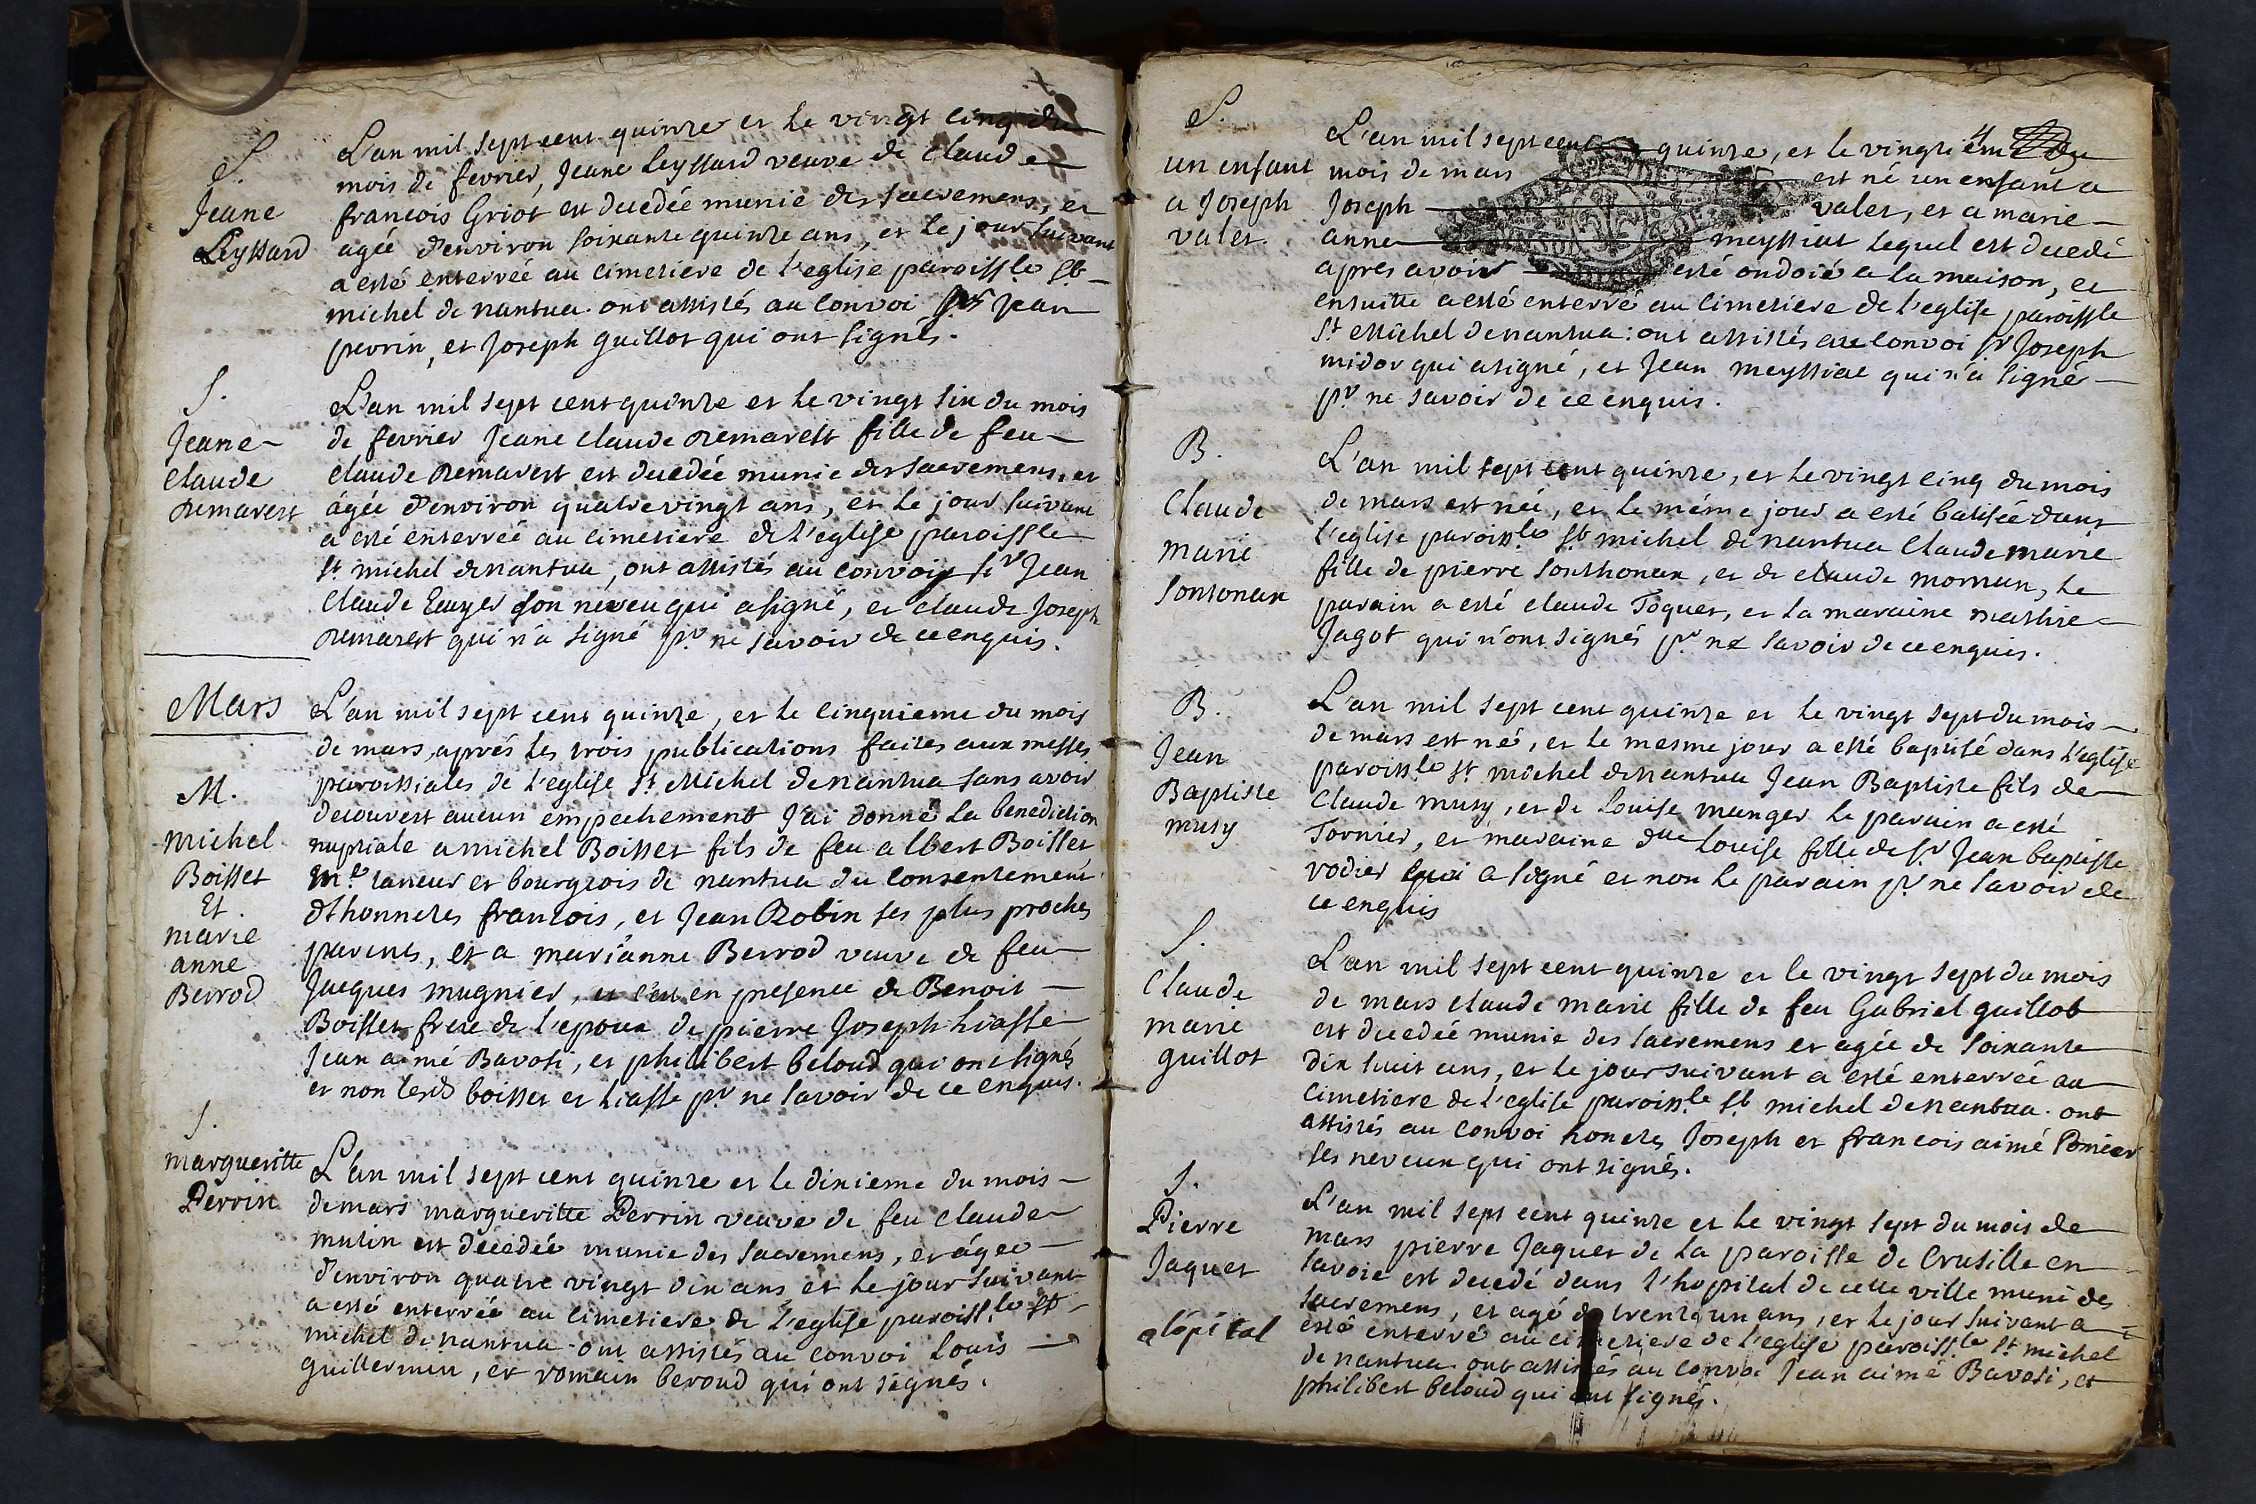 S.
Jeane
Leyssard
L'an mil sept cent quinze et le vingt cinq du
mois de fevrier, Jeane Leyssard veuve de Claude
francois Griot est decedée munie des sacremens, et
agée d'environ soixante quinze ans, et le jour suivant
a esté enterrée au cimetiere de l'eglise paroissle St
michel de nantua. ont assistés au convoi Jean
perrin, et Joseph guillot qui ont signés.
S.
Jeane
Claude
Demarest
L'an mil sept cent quinze et le vingt six du mois
de fevrier Jeane Claude Demarest fille de feu
Claude Demarest est decedée munie des sacremens, et
âgée d'environ quatre vingt ans, et le jour suivant
a esté enterrée au cimetiere de l'eglise paroissle
St michel de nantua, ont assistés au convoy sr Jean
Claude son néveu qui a signé, et Claude Joseph
Demarest qui n'a signé pr ne savoir de ce enquis.
Mars
M.
michel
Boisset
Et
marie
anne
Berrod
L'an mil sept cent quinze, et le cinquieme du mois
de mars, aprés les trois publications faites aux messes
paroissiales de l'eglise St Michel de nantua sans avoir
decouvert aucun empechement J'ai donné la benediction
nuptiale a michel Boisset fils de feu albert Boisset
me taneur et bourgeois de nantua du consentement
d'honnetes francois, et Jean Robin ses plus proches
parents, et a marianne Berrod veuve de feu
Jacques mugnier, et c'est en presence de Benoit
Boisset frere de l'epoux de pierre Joseph hiasse
Jean aimé Bavosi, et philibert beloud qui ont signés
et non lesds boisset et hiasse pr ne savoir de ce enquis.
S.
margueritte
Perrin
L'an mil sept cent quinze et le dixieme du mois
de mars margueritte Perrin veuve de feu Claude
mutin est décedée munie des sacremens, et ágée
d'environ quatre vingt dix ans et le jour suivant
a esté enterrée au cimetiere de l'eglise paroiss.le St
michel de nantua. ont assistés au convoi Louis
guillermin, et romain beroud qui ont signés.
S.
un enfant
a Joseph
valet
4
L'an mil sept cent quinze, et le vingtieme du
mois de mars est né un enfant a
Joseph valet, et a marie
anne meyssiat lequel est decedé
apres avoir esté ondoié a la maison, et
ensuitte a esté enterré au cimetiere de l'eglise paroissle
St Michel de nantua: ont assistés au convoi sr Joseph
midor qui a signé, et Jean meyssiat qui n'a signé
pr ne savoir de ce enquis.
B.
Claude
marie
Sontonax
L'an mil sept cent quinze, et le vingt cinq du mois
de mars est née, et le même jour a esté batisée dans
l'eglise paroiss.le St michel de nantua Claude marie
fille de pierre Sonthonax, et de Claude mornun, le
parain a esté Claude Toquet, et la maraine mathie
Jagot qui n'ont signés pr ne savoir de ce enquis.
B.
Jean
Baptiste
musy
L'an mil sept cent quinze et le vingt sept du mois
de mars est né, et le mesme jour a esté baptisé dans l'eglise
paroiss.le St michel de nantua Jean Baptiste fils de
Claude musy, et de Louise manger le parain a esté
Tornier, et maraine dlle Louise fille de sr Jean baptiste
vodier qui a signé et non le parain pr ne savoir de
ce enquis
S.
Claude
marie
guillot
L'an mil sept cent quinze et le vingt sept du mois
de mars Claude marie fille de feu Gabriel guillot
est decedée munie des sacremens et agée de soixante
dix huit ans, et le jour suivant a esté enterrée au
cimetiere de l'eglise paroiss.le St michel de nantua. ont
assistés au convoi honetes Joseph et francois aimé
ses neveux qui ont signés.
S.
Pierre
Jaquet
a lópital
L'an mil sept cent quinze et le vingt sept du mois de
mars pierre Jaquet de la paroisse de Crusille en
Savoie est decedé dans l'hopital de cette ville muni des
sacremens, et agé de trente un ans, et le jour suivant a
esté enterré au cimetiere de l'eglise paroiss.le St michel
de nantua. ont assistés au convoi Jean aimé Bavosi, et
philibert beloud qui ont signés.